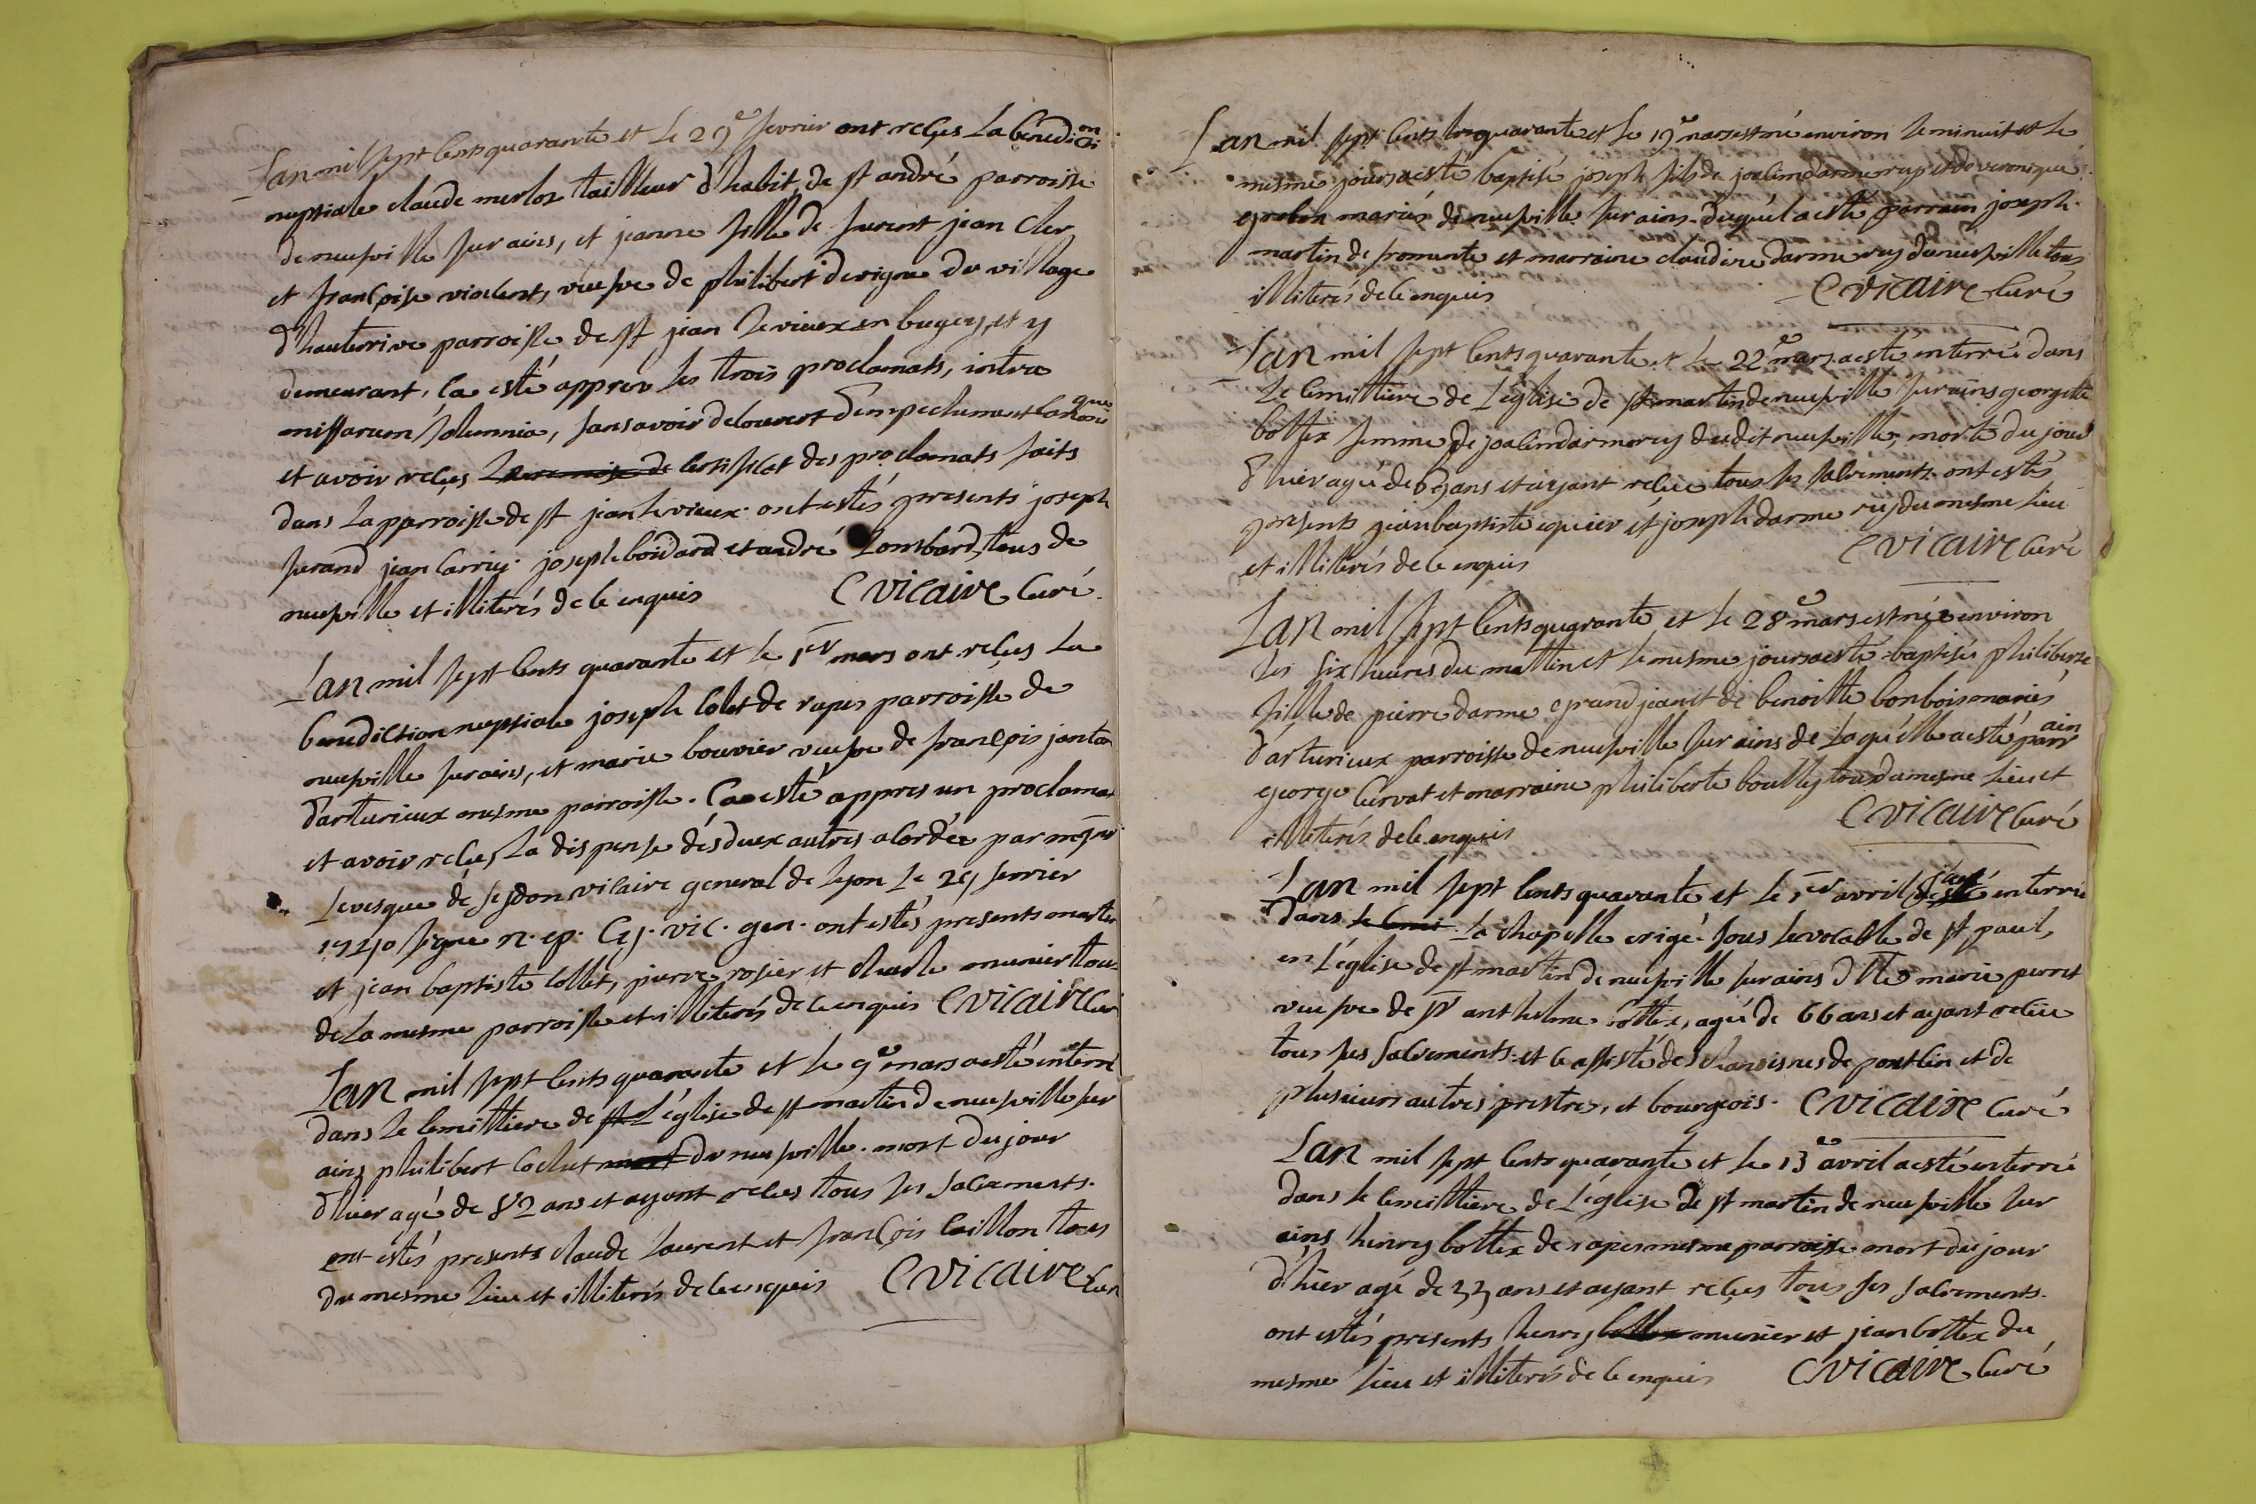 Lan mil sept cents quarante et le 29e fevrier ont reçus La benedicti on
nuptiale claude merloz tailleur d'habit, de st andré parroisse
de neufville sur ains, et jeanne fille de furent jean Cler
et françoise violent, veufve de philibert devigne du village
d'hauterive parroisse de st jean le vieux en bugey, et y
demeurant, ça esté apprés les trois proclamats, intra
missarum solemnia, sans avoir decouvert d'empechement canonique
et avoir reçus certificat des proclamats faits
dans La parroisse de st jean le vieux. ont estés presents joseph
jurand jean Carrie. joseph boudard et andré Lombard, tous de
neufville et illiterés de ce enquis C Vicaire Curé.
Lan mil sept cents quarante et le 1er mars ont reçus La
benediction nuptiale joseph Colet de rapes parroisse de
neufville sur ains, et marie bouvier veufve de françois janton
d'arturieux mesme parroisse. Ça esté appres un proclamat
et avoir reçus La dispense des deux autres acordée par mgr
Levesque de sydon vicaire general de lyon Le 25 fevrier
1740 signe n. ep. vic. gen. ont estés presents
et jean baptiste Collet, pierre rosier et charle munier tous
de La mesme parroisse et illiterés de ce enquis C Vicaire Curé
Lan mil sept cents quarante et le 9e mars a esté enterré
dans le cemittiere de st L'église de st martin de neufville sur
ains philibert Cochet mort de neufville. mort du jour
d'hier agé de 82 ans et ayant reçus tous ses sacrements.
ont estés presents claude Laurent et françois Caillon tous
du mesme Lieu et illiterés de ce enquis C Vicaire Curé
Lan mil sept cents quarante et le 19e mars est né environ le minuit et le
mesme jours a esté baptisé joseph fils de joachim darmerey et de veronique
grobon mariés de neufville sur ains. duquel a esté parrain joseph
martin de fromente et marraine claudine darmerey de neufville tous
illiterés de ce enquis C Vicaire Curé
Lan mil sept cents quarante et le 22e mars a esté enterrée dans
Le cemittiere de L'église de st martin de neufville sur ains georgette
bottex femme de joachim darmerey dudit neufville, morte du jour
d'hier agée de ans et ayant reçue tous ses sacrements. ont estés
presents jean baptiste equier et joseph darmerey du mesme Lieu
et illiterés de ce enquis C Vicaire Curé
Lan mil sept cents quarante et le 28e mars est née environ
les six heures du mattin et le mesme jours a esté baptisée philiberte
fille de pierre darme grandjean et de benoitte bonbois mariés
d'arturieux parroisse de neufville sur ains de Laquelle a esté parrain
george Curvat et marraine philiberte boully tous du mesme Lieu et
illiterés de ce enquis C Vicaire Curé
Lan mil sept cents quarante et le 1er avril a esté enterrée
dans le cemi La chapelle erigé sous le vocable de st paul,
en L'église de st martin de neufville sur ains dlle marie perret
veufve de sr anthelme bottex, agée de 66 ans et ayant reçüe
tous ses sacrements. et ce assisté des chanoisnes de pontcin et de
plusieurs autres prestres, et bourgeois. C Vicaire Curé
Lan mil sept cents quarante et le 13e avril a esté enterré
dans le cemittiere de L'église de st martin de neufville sur
ains henry bottex de rapes mesme parroisse mort du jour
d'hier agé de 33 ans et ayant reçus tous ses sacrements.
ont estés presents henry bottex munier et jean bottex du
mesme Lieu et illiterés de ce enquis C Vicaire Curé